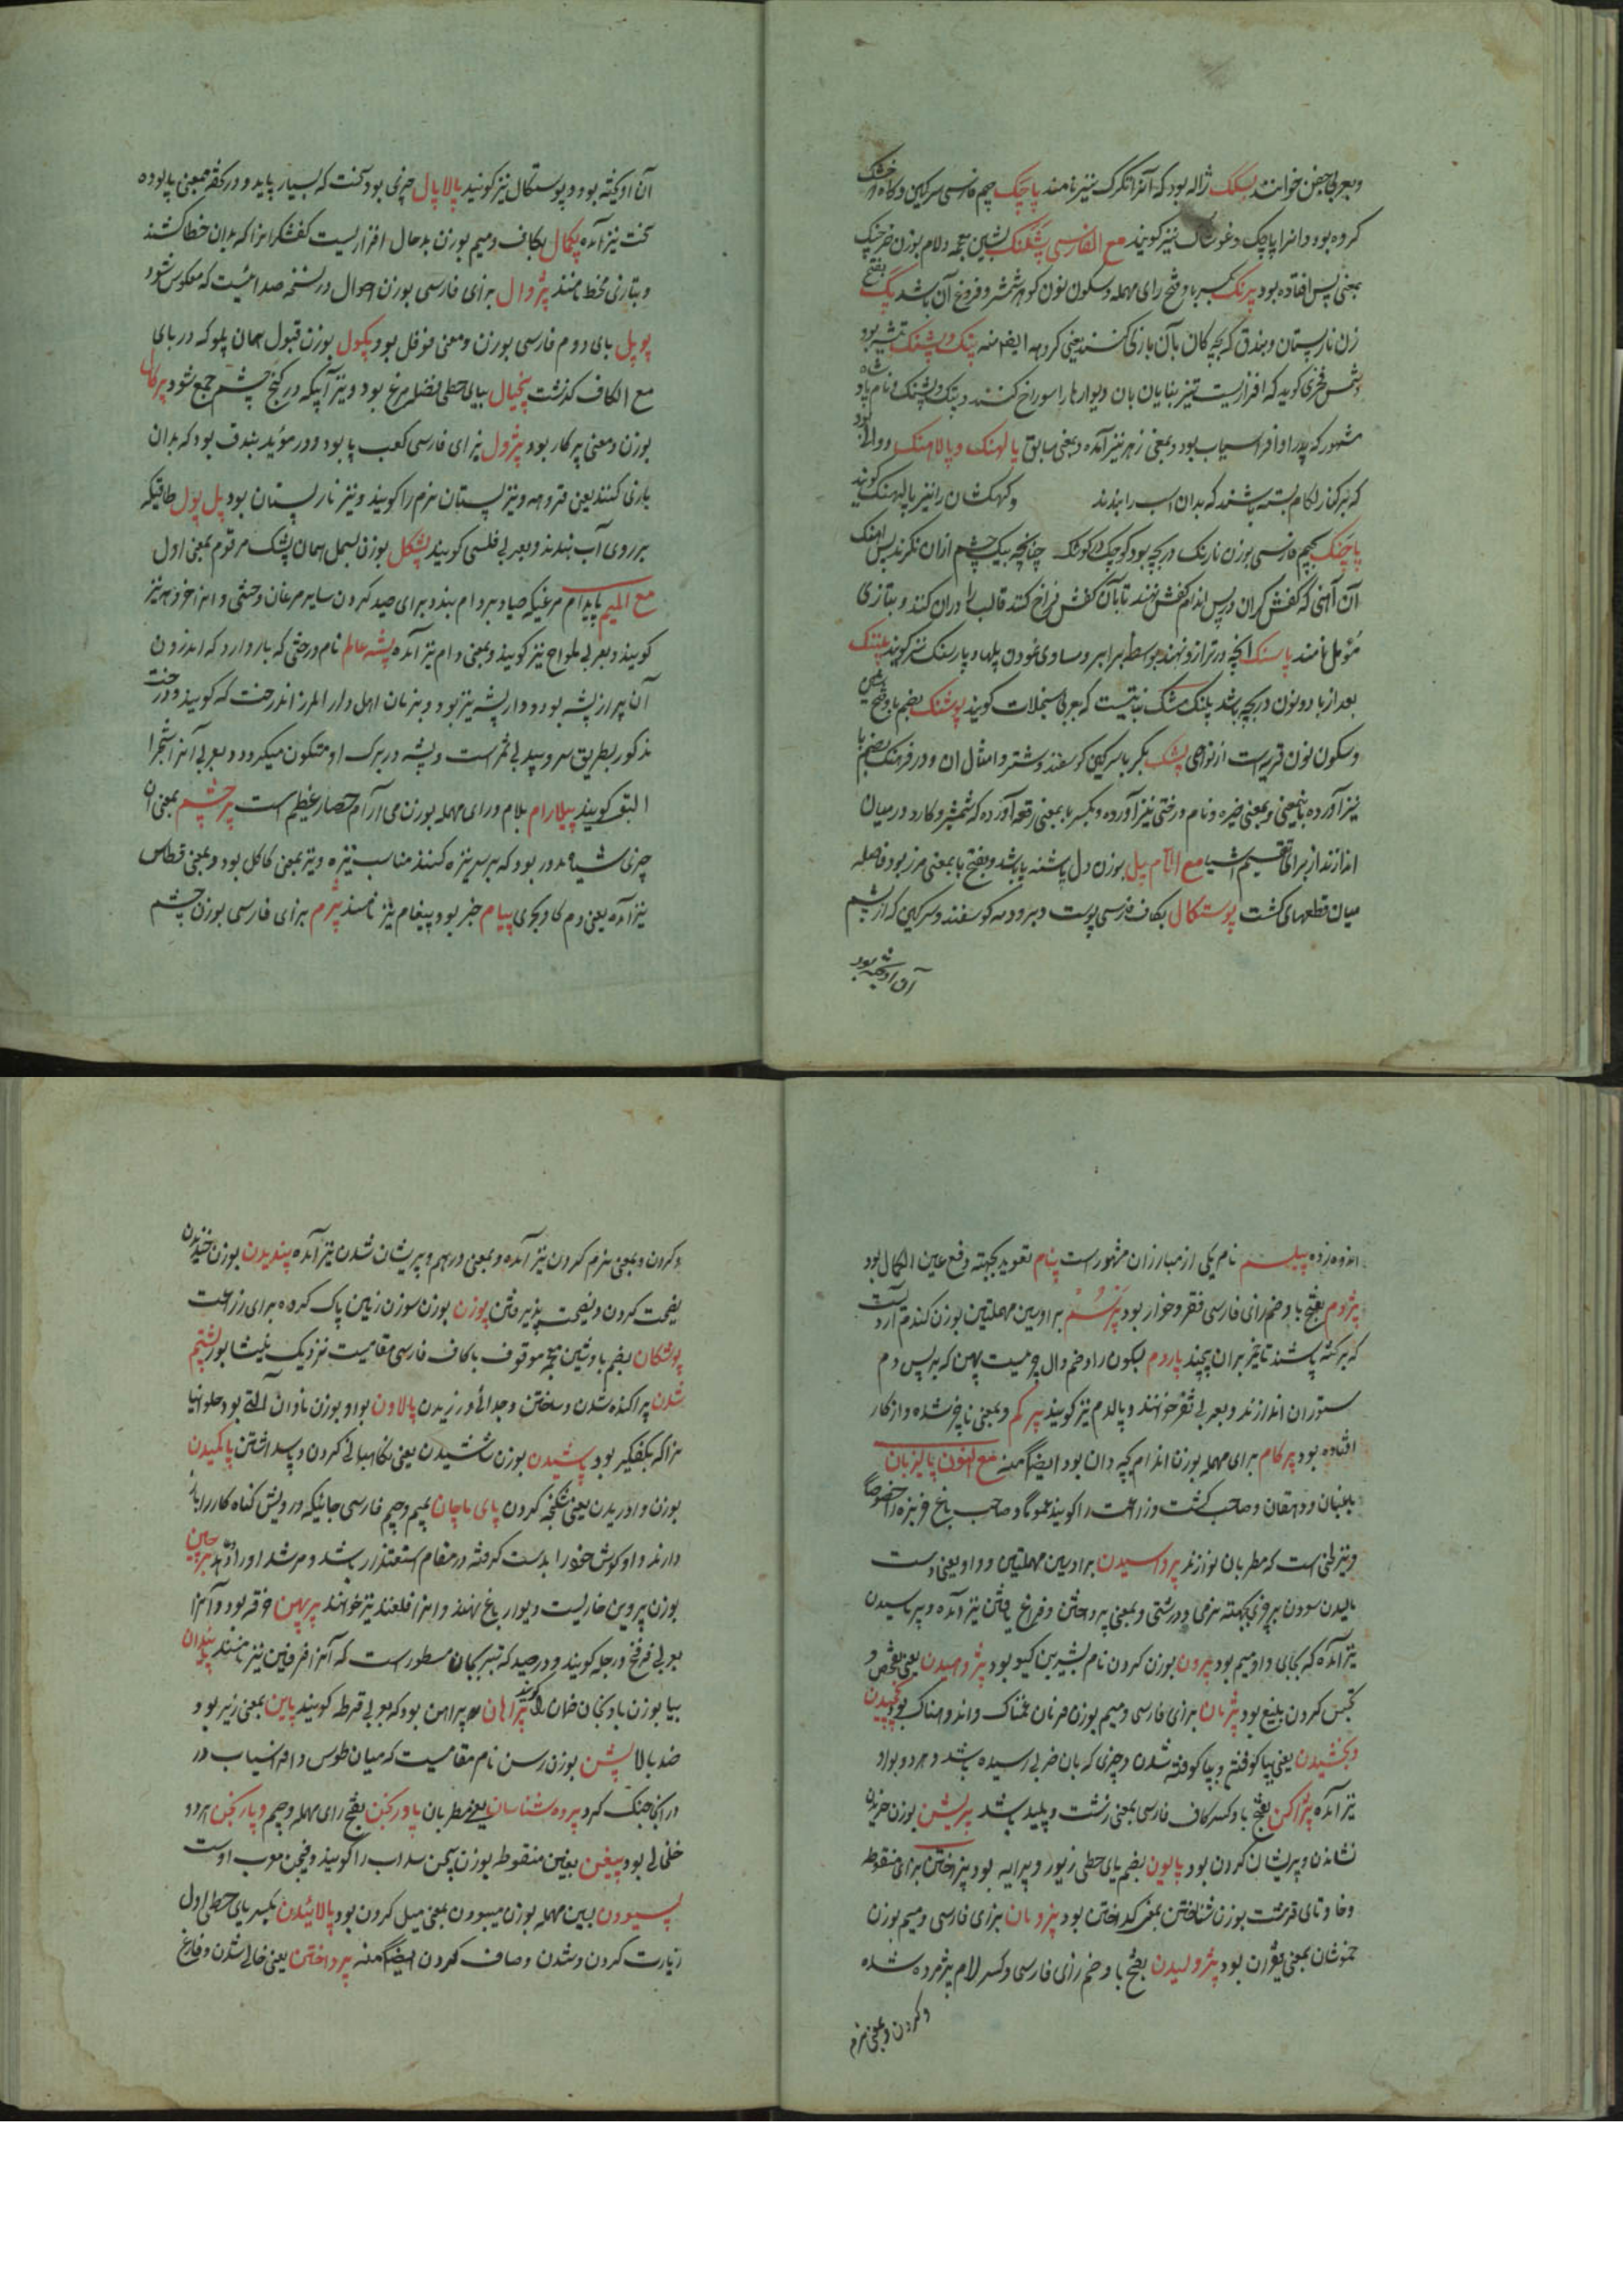 وبعربی حفن خوانند بسنگک ژاله بود که آنرا تگرگ نیز نامند پاچک جیم فارسی سرکین کاو خشک
کرده بود و انرا پاچک و غوشاک نیز کویند مع الفارسی پشلنک بشین معجمه و لام بوزن خرچنک
بمعنی پس افتاده بود پرنک بکسر با و فتح رای مهمله و سکون نون کوهر شمشیر و فروغ آن باشد پک بفتح
زن نارپستان و بندق که بچه کان بآن بازی کنند یعنی کروهه ایضا منه پتک و پشنک تیشه بود
شمس فخری کوید که افزاریست تیز بنایان بان دیوارها را سوراخ کنند و پتک و پشنک نام پادشاه
مشهور که پدر او افراسیاب بود و بمعنی زهر نیز آمده و بمعنی سابق پالهنک و پالاهنک دوالی بود
که بر کنار لکام بسته باشند که بدان اسب را بندند و کهکشان را نیز پالهنک کویند
پاچنک بجیم فارسی بوزن نارنک دریچه بود کوچک در کوشک چنانچه بیک چشم ازان نکرند پس اهنک
آن آهنی که کفش کران در پس اندام کفش نهند تا بآن کفش فراخ کنند قالب را دران کنند و بتازی
مؤمل نامند پاسنک انچه در ترازو نهند بواسطه برابر و مساوی نمودن پلها و پارسنک نیز کویند پلنک
بعد از با دو نون دریچه باشد پلنک مشک نباتیست که بعربی سنجلات کویند پوشنک بضم با و فتح شین
و سکون نون قریه است از نواحی پشک بکسر با سرکین کوسفند و شتر و امثال ان و در فرهنک بضم با
نیز آورده باینمعنی و بمعنی خیره و نام درختی نیز آورده و بکسر با بمعنی رقعه آورده که شمشیر و کارد در میان
اندازند از برای تقسیم اشیا مع اللام پل بوزن دل پاشنه پا باشد و بفتح با بمعنی مرز بود فاصله
میان قطعهای کشت پوستکال بکاف فارسی پوست دبر و دمه کوسفند و سرکین که از پشم
آن آویخته بود
آن آویخته بود و پوستکال نیز کویند پالاپال چیزی بود سخت که بسیار پاید و در تحفه بمعنی پالوده
سخت نیز آمده پکمال بکاف و میم بوزن بدحال افزاریست کفشکرانرا که بدان خط کشند
و بتازی مخط نامند پژوال بزای فارسی بوزن احوال در نسخه صدائیست که معکوس شود
پوپل بای دوم فارسی بوزن و معنی فوفل بود پکول بوزن قبول همان پلوکه در بای
مع الکاف کذشت پیخال بیای حطی فضله مرغ بود و نیز آنکه در کنج چشم جمع شود پرکال
بوزن و معنی پرکار بود پژول بزای فارسی کعب پا بود و در مؤید بندق بود که بدان
بازی کنند یعنی قروهه و نیز پستان نرم را کویند و نیز نارپستان بود پل پول طاقیکه
بر روی آب بندند و بعربی فلسی کویند پشکل بوزن بسمل همان پشک مرقوم بمعنی اول
مع المیم پایدام مرغیکه صیاد بر دام بندد برای صید کردن سایر مرغان وحشی و انرا خروهه نیز
کویند و بعربی ملواح نیز کویند و بمعنی دام نیز آمده پشه عالم نام درختی که بار دارد که اندرون
آن پر از پشه بود و دار پشه نیز بود و بزبان اهل دار المرز اندرخت که کویند و درخت
مذکور بطریق سرو سپید بی ثمر است و پشه در برک او متکون میکردد و بعربی آنرا شجرة
البق کویند پیلارام بلام و رای مهمله بوزن می آرام حصار عظیم است پرچم بمعنی ان
چیزی سیاه مدور بود که بر سر نیزه کنند مناسب نیزه و نیز بمعنی کاکل بود و بمعنی قطاس
نیز آمده یعنی دم کاو بحری پیام خبر بود و پیغام نیز نامند پژم بزای فارسی بوزن چشم
اندوه زده پیلسم نام یکی از مبارزان مشهور است پنام تعویذ بجهته دفع عین الکمال بود
پژوم بفتح با و ضم زای فارسی فقر و خوار بود پرسم برا و سین مهملتین بوزن کندم آردیست
که بر کتبه پاشند تا خمیر بران نچسپد پاردم بسکون را و ضم دال چرمیست پهن که بر پس دم
ستوران اندازند و بعربی ثفر خوانند و پالدم نیز کویند پیر کم و بمعنی ناچیز شده و از کار
افتاده بود پرکام برای مهمله بوزن اندام بچه دان بود ایضا منه مع النون پالیزبان
باغبان و دهقان و صاحب کشت و زراعت را کویند عموما و صاحب باغ خربزه را خصوصا
و نیز لحنی است که مطربان نوازند پرواسیدن برا و سین مهملتین و واو یعنی دست
مالیدن سودن بر چیزی بجهته نرمی و درشتی و بمعنی پرداختن و فراغ یافتن نیز آمده و پرماسیدن
نیز آمده که بجای واو میم بود پیرون بوزن کردن نام پشیرین کیو بود پژوهیدن یعنی تفحص و
تجسس کردن بلیغ بود پژمان بزای فارسی و میم بوزن فرمان غمناک و اندوهناک بود پچسپیدن
و بخشیدن یعنی بپا کوفتن و بپا کوفته شدن و چیزی که بان ضربی رسیده باشد و هر دو بواو
نیز آمده پژاکن بفتح با و کسر کاف فارسی بمعنی زشت و پلید باشد پریشن بوزن خریدن
نشاندن و پریشان کردن بود پایون بضم یای حطی زیور و پیرایه بود پزاختن برای منقوطه
و خا و تای قرشت بوزن شناختن بمعنی کداختن بود پزومان بزای فارسی و میم بوزن
خموشان بمعنی پژمان بود پژولیدن بفتح با و ضم زای فارسی و کسر لام پژمرده شده
و کردن و بمعنی نرم
و کردن و بمعنی نرم کردن نیز آمده و بمعنی درهم و پریشان شدن نیز آمده پندیدن بوزن خندیدن
نصیحت کردن و نصیحت پذیرفتن پوزن بوزن سوزن زمین پاک کرده برای زراعت
پوشکان بضم با و شین معجمه موقوف با کاف فارسی مقامیست نزدیک نیشابور پشنجم
شدن پراکنده شدن و ساختن و جدائی ورزیدن پالاون بواو بوزن ناودان آلتی بود حلوانیا
نرا که بکفکیر بود پاشیدن بوزن شاشیدن یعنی نکاهبانی کردن و پاس داشتن پالمیدن
بوزن وادریدن یعنی شکنجه کردن پای ماچان بمیم و جیم فارسی جائیکه درویش کناه کار را باز
دارند و او کوش خود را بدست کرفته در مقام استعتذار باشد و مرشد او را دهد پرچین
بوزن پروین خاریست دیوار باغ نهند و انرا قلعند نیز خوانند پرپهن خرفه بود و آنرا
بعربی فرفخ و رجله کویند و در صیدکه تبر کجان مسطور است که آنرا فرفین نیز نامند پتیدان
بیا بوزن بادنجان خان کویند پراهان پیراهن بود که بعربی قرطه کویند پاین بمعنی زیر بود و
ضد بالا پشن بوزن رسن نام مقامیست که میان طوس و افراسیاب در
در انجا جنک کرد پرده شناسان یعنی مطربان پاورنجن بفتح رای مهمله و جیم و پارنجن هر دو
خلخالی بود پیغن بغین منقوطه بوزن بیجن سداب را کویند و فیجن معرب اوست
پسیودن بسین مهمله بوزن میبودن بمعنی میل کردن بود پالائیدن بکسر یای حطی اول
زیارت کردن و شدن و صاف کردن ایضا منه پرداختن یعنی خالی شدن و فارغ